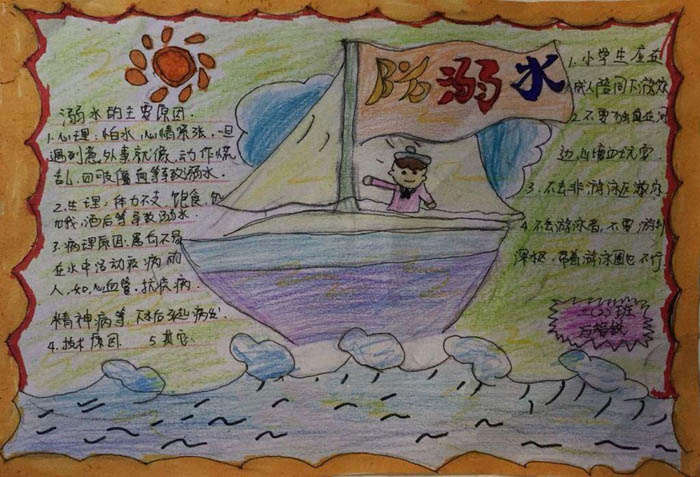 防溺水
溺水的主要原因.
1.心理:怕水,心情紧张,一旦
遇到意外事就惊,动作慌
乱,四肢僵直等导致溺水.
2.生理:体力不支,饱食,饥
饿,酒后等导致溺水.
3.病理原因,属有不易
在水中活动疾病
人,如,心血管,抗疾病
精神病等,下水后引起病发.
4.技术原因 5.其它
1.小学生应在
成人陪同下游泳
2.不要独自在河
边,山塘边玩耍.
3.不去非游泳区游泳
4.不会游泳者,不要游到
深水区,带着游泳圈也不行
二(2)班